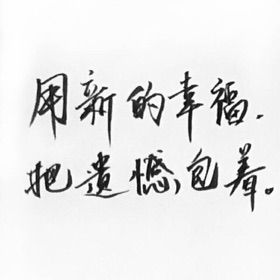 用新的幸福.
把遗憾包着。